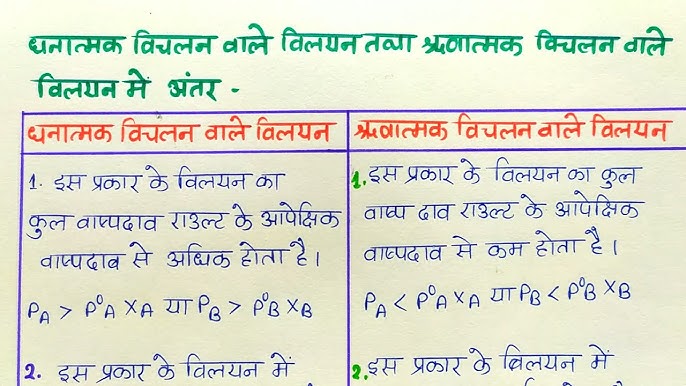 धनात्मक विचलन वाले विलयन तथा ऋणात्मक विचलन वाले
विलयन में अंतर -
धनात्मक विचलन वाले विलयन
ऋणात्मक विचलन वाले विलयन
1. इस प्रकार के विलयन का
कुल वाष्पदाव राउल्ट के आपेक्षिक
वाष्पदाव से अधिक होता है।
P_A > P⁰_A X_A या P_B > P⁰_B X_B
2. इस प्रकार के विलयन में
1. इस प्रकार के विलयन का कुल
वाष्प दाव राउल्ट के आपेक्षिक
वाष्पदाव से कम होता है।
P_A < P⁰_A X_A या P_B < P⁰_B X_B
2. इस प्रकार के विलयन में